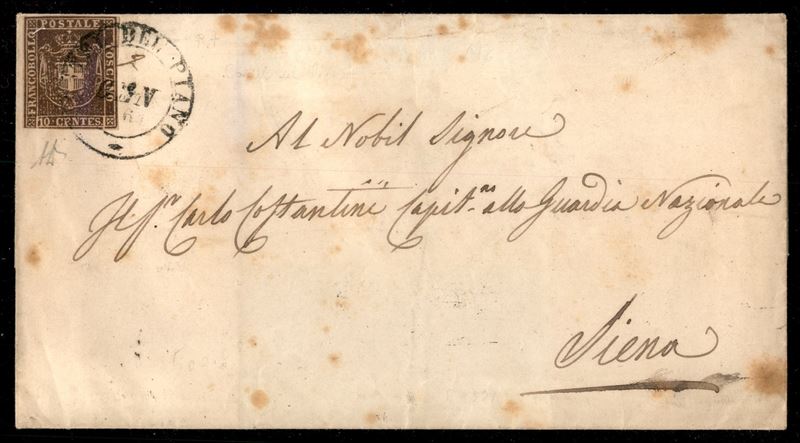 FRANCOBOLLO
POSTALE
TOSCANO
10 CENTES
DEL PIANO
GEN
Al Nobil Signore
Il Sr. Carlo Costantini Capit.no alla Guardia Nazionale
Siena